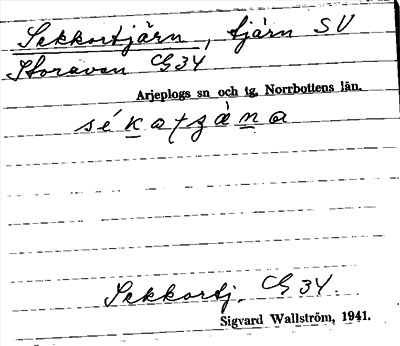 Sekkortjärn, tjärn SV
Storavan CG34
Arjeplogs sn och tg, Norrbottens län.
Sekkortj. CG 34.
Sigvard Wallström, 1941.